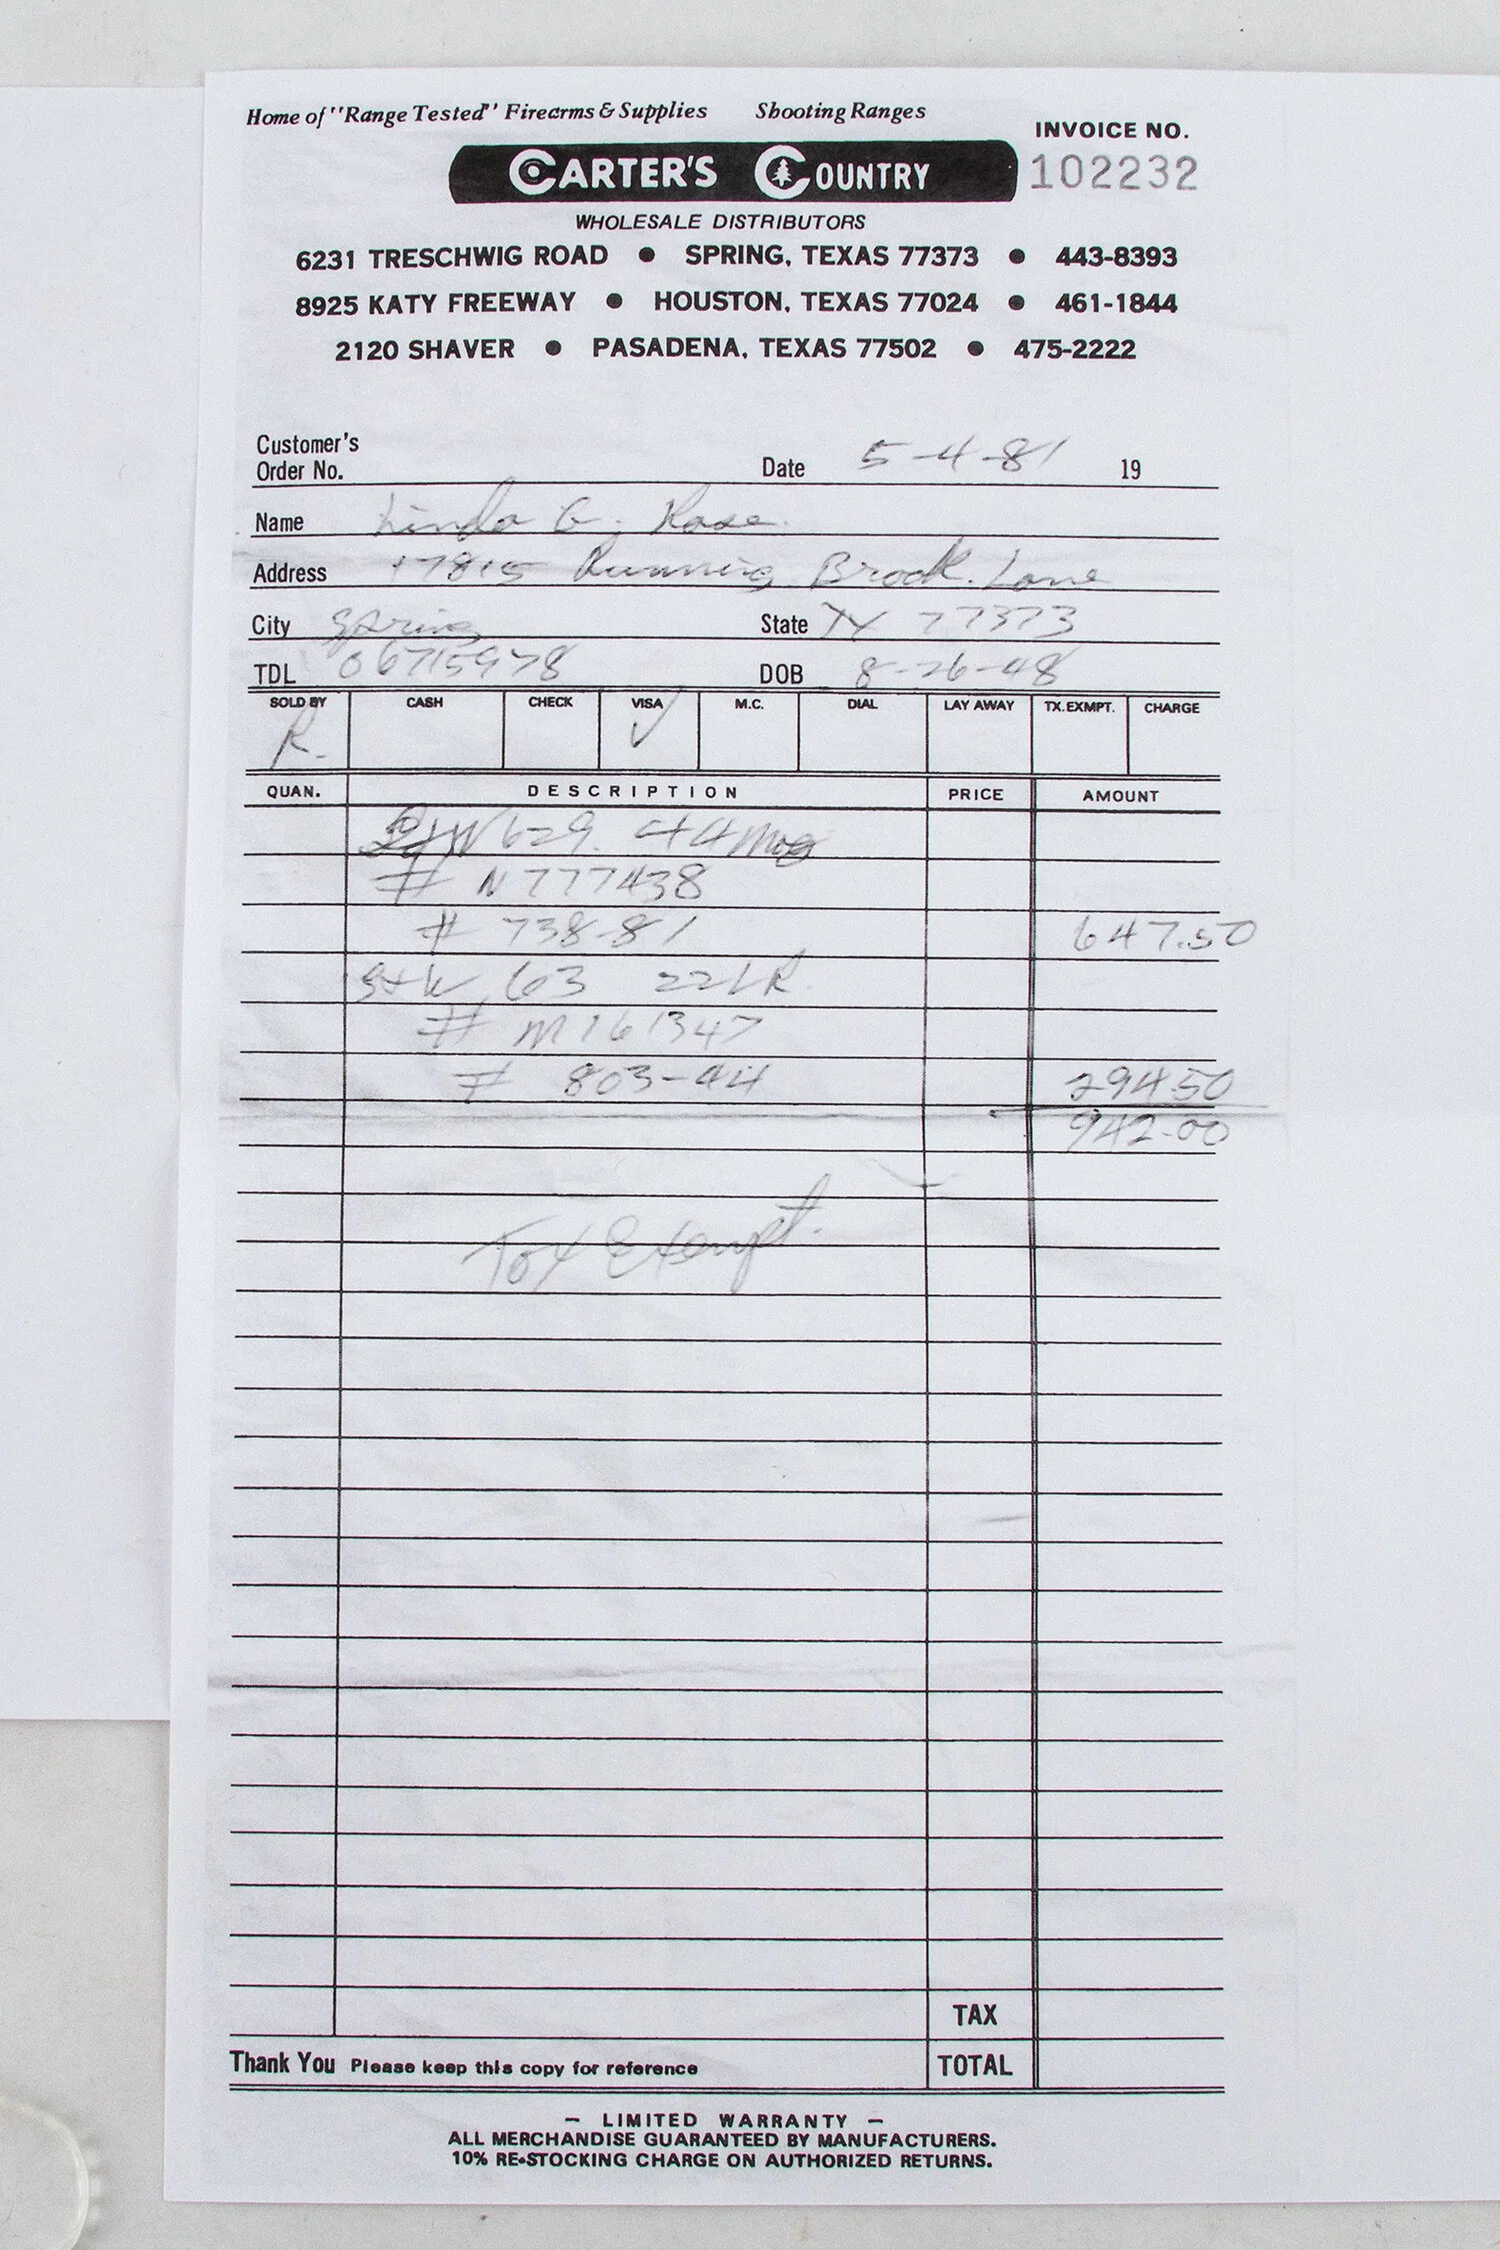 Home of "Range Tested" Firearms & Supplies Shooting Ranges
INVOICE NO.
CARTER'S COUNTRY 102232
WHOLESALE DISTRIBUTORS
6231 TRESCHWIG ROAD • SPRING, TEXAS 77373 • 443-8393
8925 KATY FREEWAY • HOUSTON, TEXAS 77024 • 461-1844
2120 SHAVER • PASADENA, TEXAS 77502 • 475-2222
Customer's
Order No. Date 5-4-81 19
Name Linda G. Rose
Address 17815 Running Brook Lane
City Spring State TX 77373
TDL 06715978 DOB 8-26-48
SOLD BY CASH CHECK VISA M.C. DIAL LAY AWAY TX.EXMPT. CHARGE
R. ✓
QUAN. DESCRIPTION PRICE AMOUNT
S&W 629. 44 Mag
# N777438
# 738-81 647.50
S+W 63 22LR
# M161347
# 803-44 294.50
942.00
Tax Exempt.
TAX
Thank You Please keep this copy for reference TOTAL
— LIMITED WARRANTY —
ALL MERCHANDISE GUARANTEED BY MANUFACTURERS.
10% RE-STOCKING CHARGE ON AUTHORIZED RETURNS.